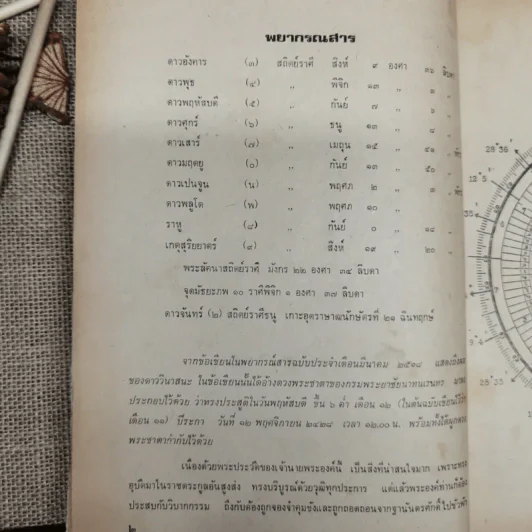 พยากรณสาร
ดาวอังคาร (๓) สถิตย์ราศี สิงห์ ๙ องศา ๓๖ ลิบดา
ดาวพุธ (๔) ,, พิจิก ๑๓ ,,
ดาวพฤหัสบดี (๕) ,, กันย์ ๗ ,, ๖ ,,
ดาวศุกร์ (๖) ,, ธนู ๑๓ ,, ๘ ,,
ดาวเสาร์ (๗) ,, เมถุน ๑๕ ,, ๕๐ ,,
ดาวมฤตยู (๐) ,, กันย์ ๑๓ ,, ๕๐ ,,
ดาวเนปจูน (น) ,, พฤศภ ๒ ,, ,,
ดาวพลูโต (พ) ,, พฤศภ ๑๐ ,,
ราหู (๘) ,, กันย์ ๐ ,, ๑๘ ,,
เกตุสุริยยาตร์ (๙) ,, สิงห์ ๑๙ ,, ๒๐ ,,
พระลัคนาสถิตย์ราศี มังกร ๒๒ องศา ๓๔ ลิบดา
จุดมัธยะภพ ๑๐ ราศีพิจิก ๑ องศา ๓๗ ลิบดา
ดาวจันทร์ (๒) สถิตย์ราศีธนู เกาะอุตราษาฒนักษัตรที่ ๒๑ ฉินทฤกษ์
จากข้อเขียนในพยากรณ์สารฉบับประจำเดือนมีนาคม ๒๕๑๘ แสดงถึง
ของดาววินาสนะ ในข้อเขียนนั้นได้อ้างดวงพระชาตาของกรมพระยาชัยนาทนเรนทร มา
ประกอบไว้ด้วย ว่าทรงประสูติในวันพฤหัสบดี ขึ้น ๖ ค่ำ เดือน ๑๒ (ในต้นฉบับเขียนไว้ว่า
เดือน ๑๑) ปีระกา วันที่ ๑๒ พฤศจิกายน ๒๔๒๘ เวลา ๑๒.๐๐ น. พร้อมทั้งได้ผูกดวง
พระชาตากำกับไว้ด้วย
เนื่องด้วยพระประวัติของเจ้านายพระองค์นี้ เป็นสิ่งที่น่าสนใจมาก เพราะทรง
อุบัติมาในราชตระกูลอันสูงส่ง ทรงบริบูรณ์ด้วยวุฒิทุกประการ แต่แล้วพระองค์ท่านก็ต้อง
ประสบกับวิบากกรรม ถึงกับต้องถูกจองจำคุมขังและถูกถอดถอนจากฐานันดรศักดิ์ไปชั่วพัก
๒
28°36'